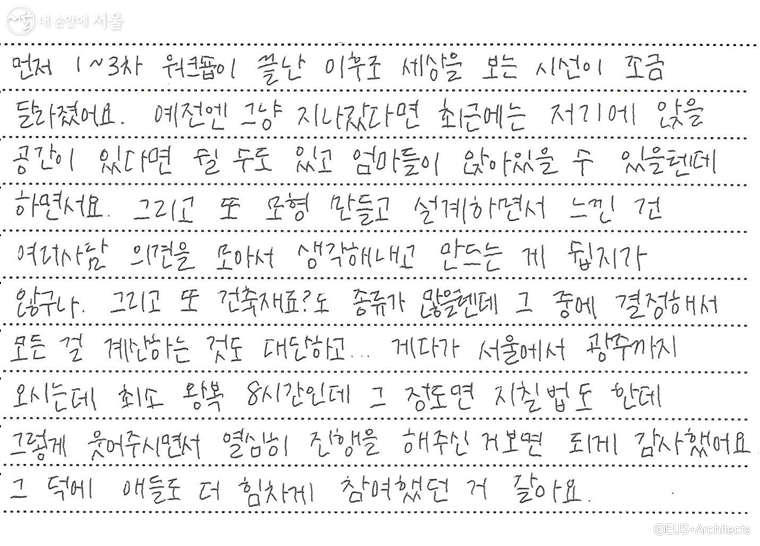 내 손안에 서울
먼저 1~3차 워크숍이 끝난 이후로 세상을 보는 시선이 조금
달라졌어요. 예전엔 그냥 지나갔다면 최근에는 저기에 앉을
공간이 있다면 쉴 수도 있고 엄마들이 앉아있을 수 있을텐데
하면서요. 그리고 또 모형 만들고 설계하면서 느낀 건
여러사람 의견을 모아서 생각해내고 만드는 게 쉽지가
않구나. 그리고 또 건축재료?도 종류가 많을텐데 그 중에 결정해서
모든 걸 계산하는 것도 대단하고... 게다가 서울에서 광주까지
오시는데 최소 왕복 8시간인데 그 정도면 지칠법도 한데
그렇게 웃어주시면서 열심히 진행을 해주신 거보면 되게 감사했어요
그 덕에 애들도 더 힘차게 참여했던 거 같아요.
©EUS+Architects